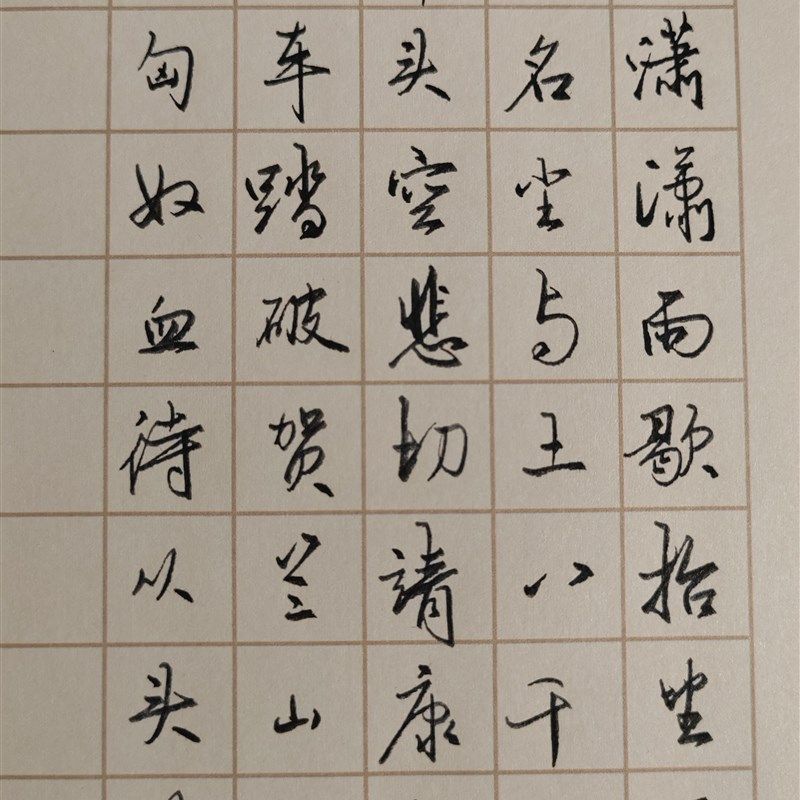 潇潇雨歇抬望
名尘与土八千
头空悲切靖康
车踏破贺兰山
匈奴血待从头